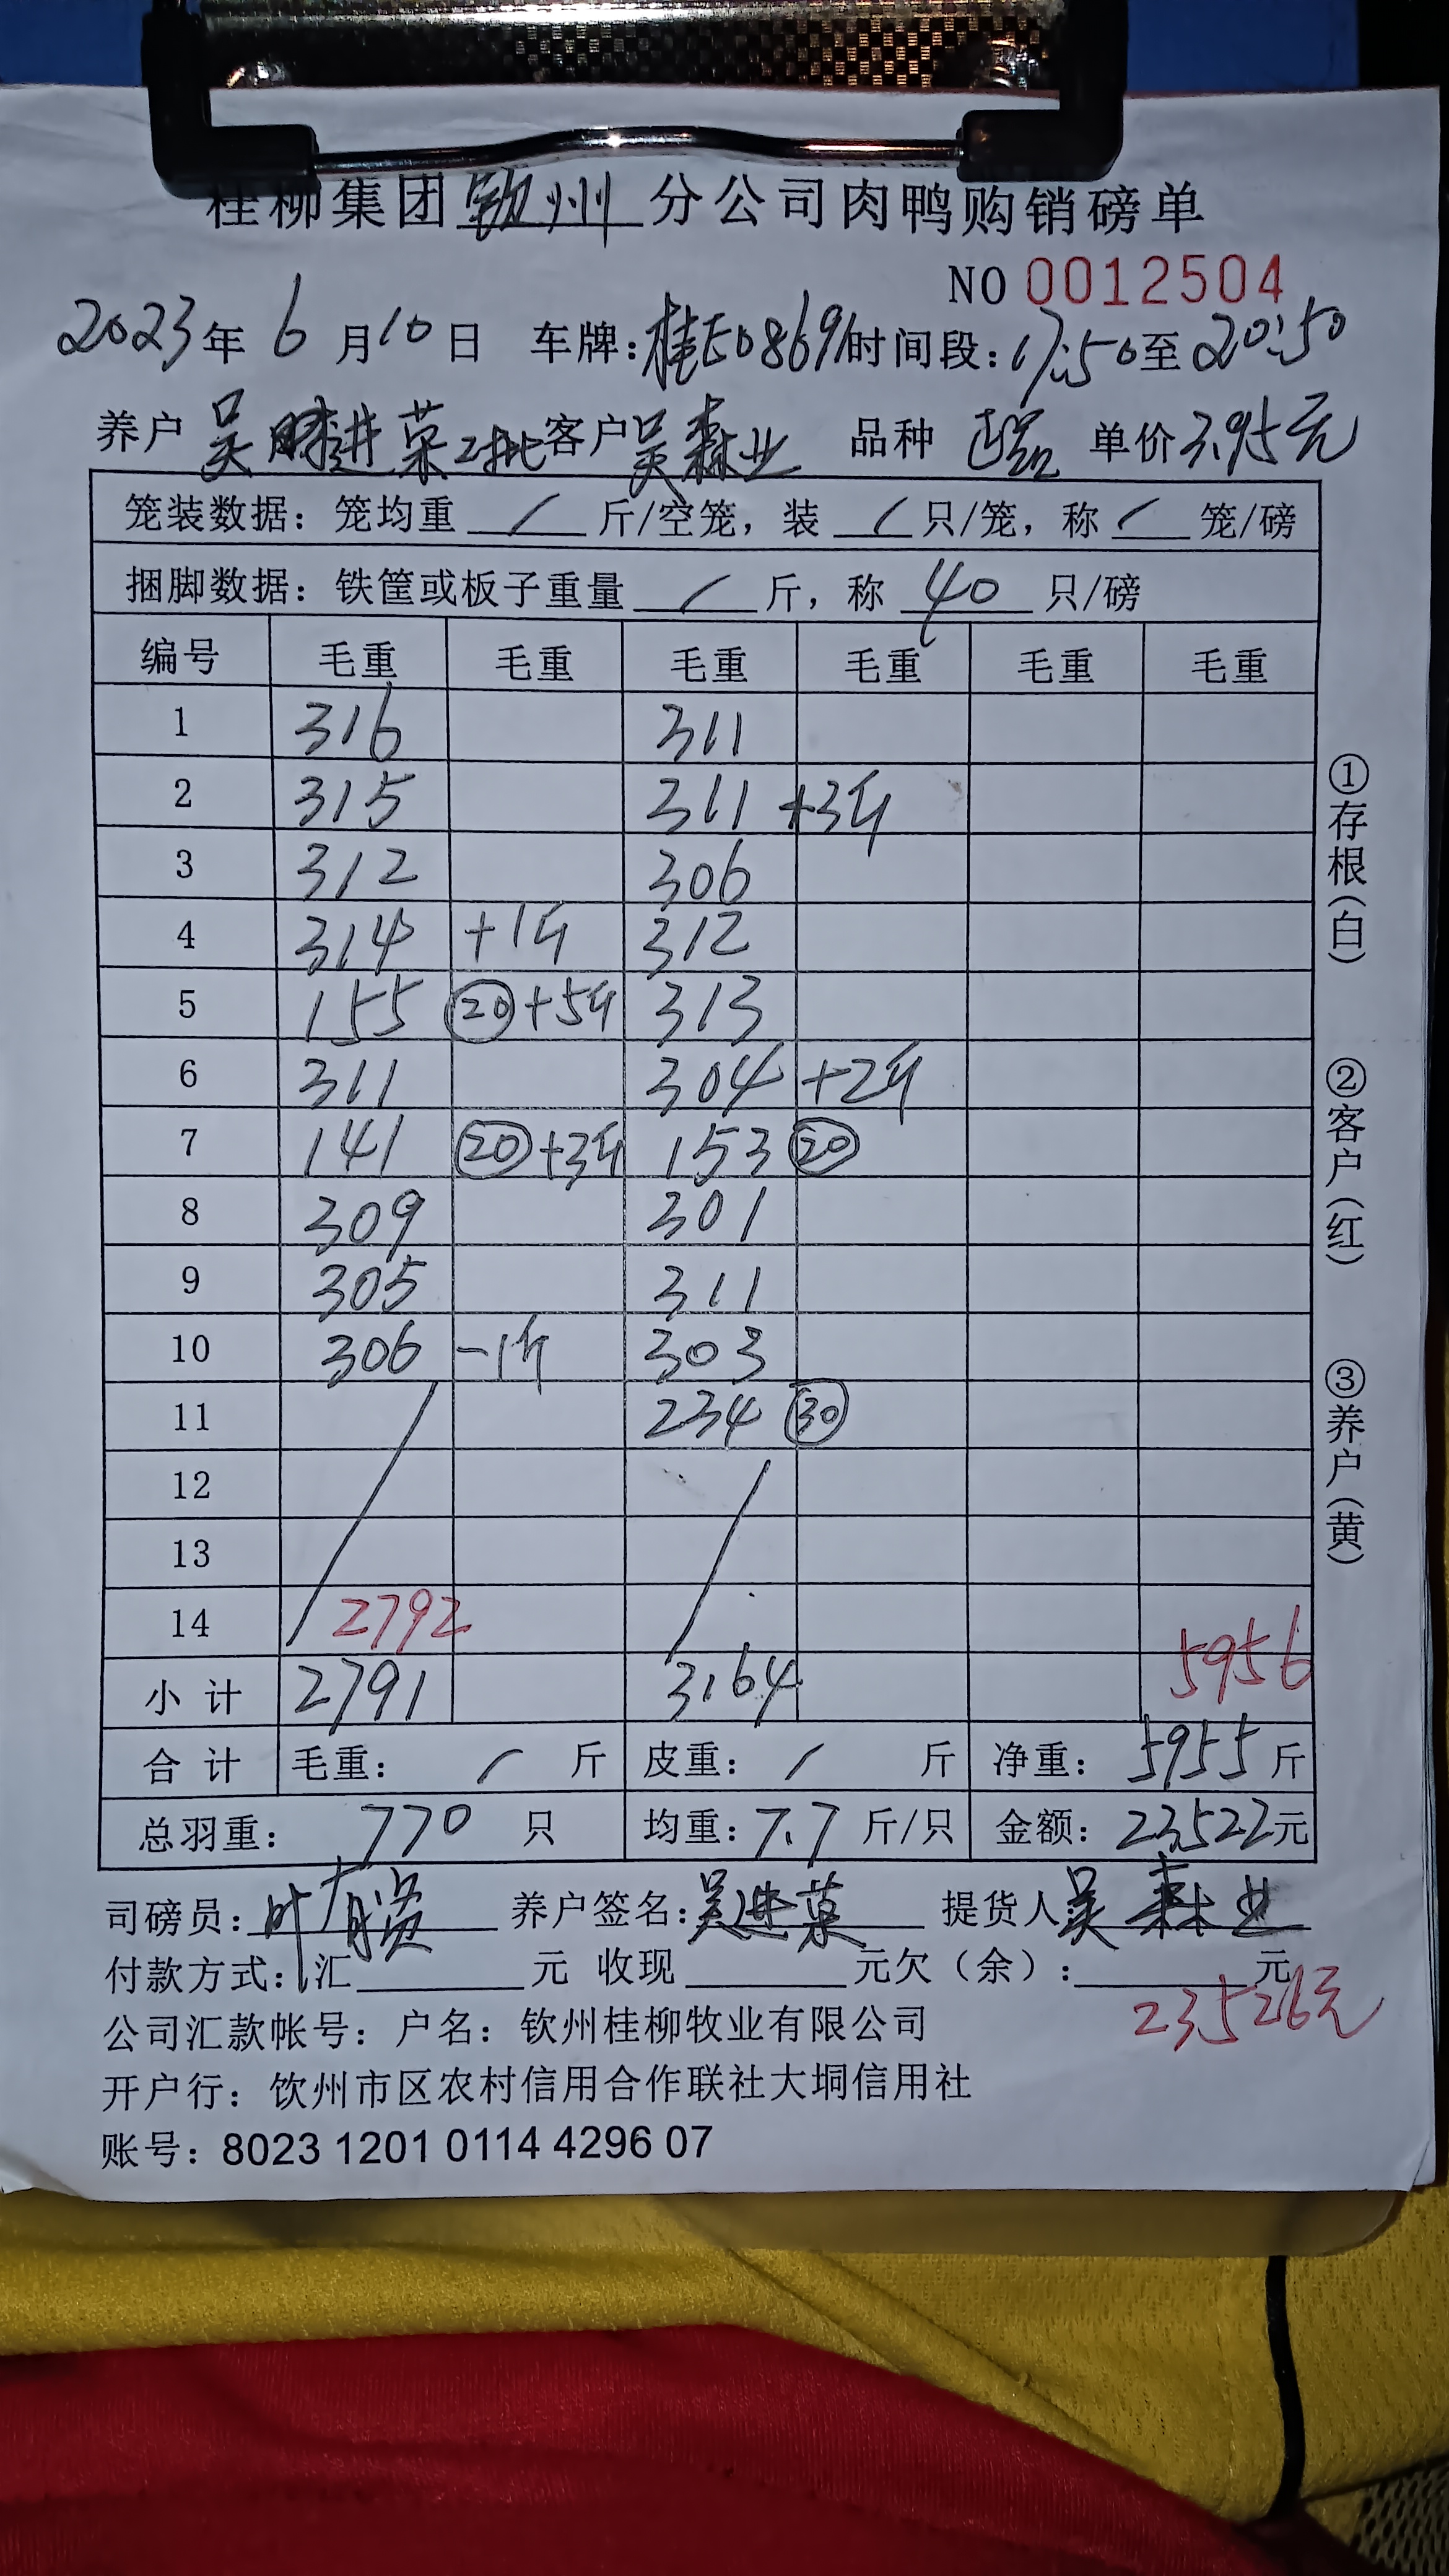 桂柳集团钦州分公司肉鸭购销磅单
NO 0012504
2023年 6 月 10 日 车牌:桂E0869 时间段:17:50至20:50
养户 吴 进菜二批 客户 吴森业 品种 单价3.95元
笼装数据: 笼均重 / 斤/空笼, 装 / 只/笼, 称 / 笼/磅
捆脚数据: 铁筐或板子重量 / 斤, 称 40 只/磅
编号 毛重 毛重 毛重 毛重 毛重 毛重
1 316 311
2 315 311 +3斤
3 312 306
4 314 +1斤 312
5 155 ⑳+5斤 313
6 311 304 +2斤
7 141 ⑳+3斤 153 ⑳
8 309 301
9 305 311
10 306 -1斤 303
11 234 ㉚
12
13
14 2792
5956
小 计 2791 3164
合 计 毛重: / 斤 皮重: / 斤 净重: 5955 斤
总羽重: 770 只 均重: 7.7 斤/只 金额: 23522元
司磅员: 叶 养户签名: 吴进菜 提货人 吴森业
付款方式: 汇 元 收现 元欠(余): 元
23526元
公司汇款帐号: 户名: 钦州桂柳牧业有限公司
开户行: 钦州市区农村信用合作联社大垌信用社
账号: 8023 1201 0114 4296 07
①存根(白)
②客户(红)
③养户(黄)